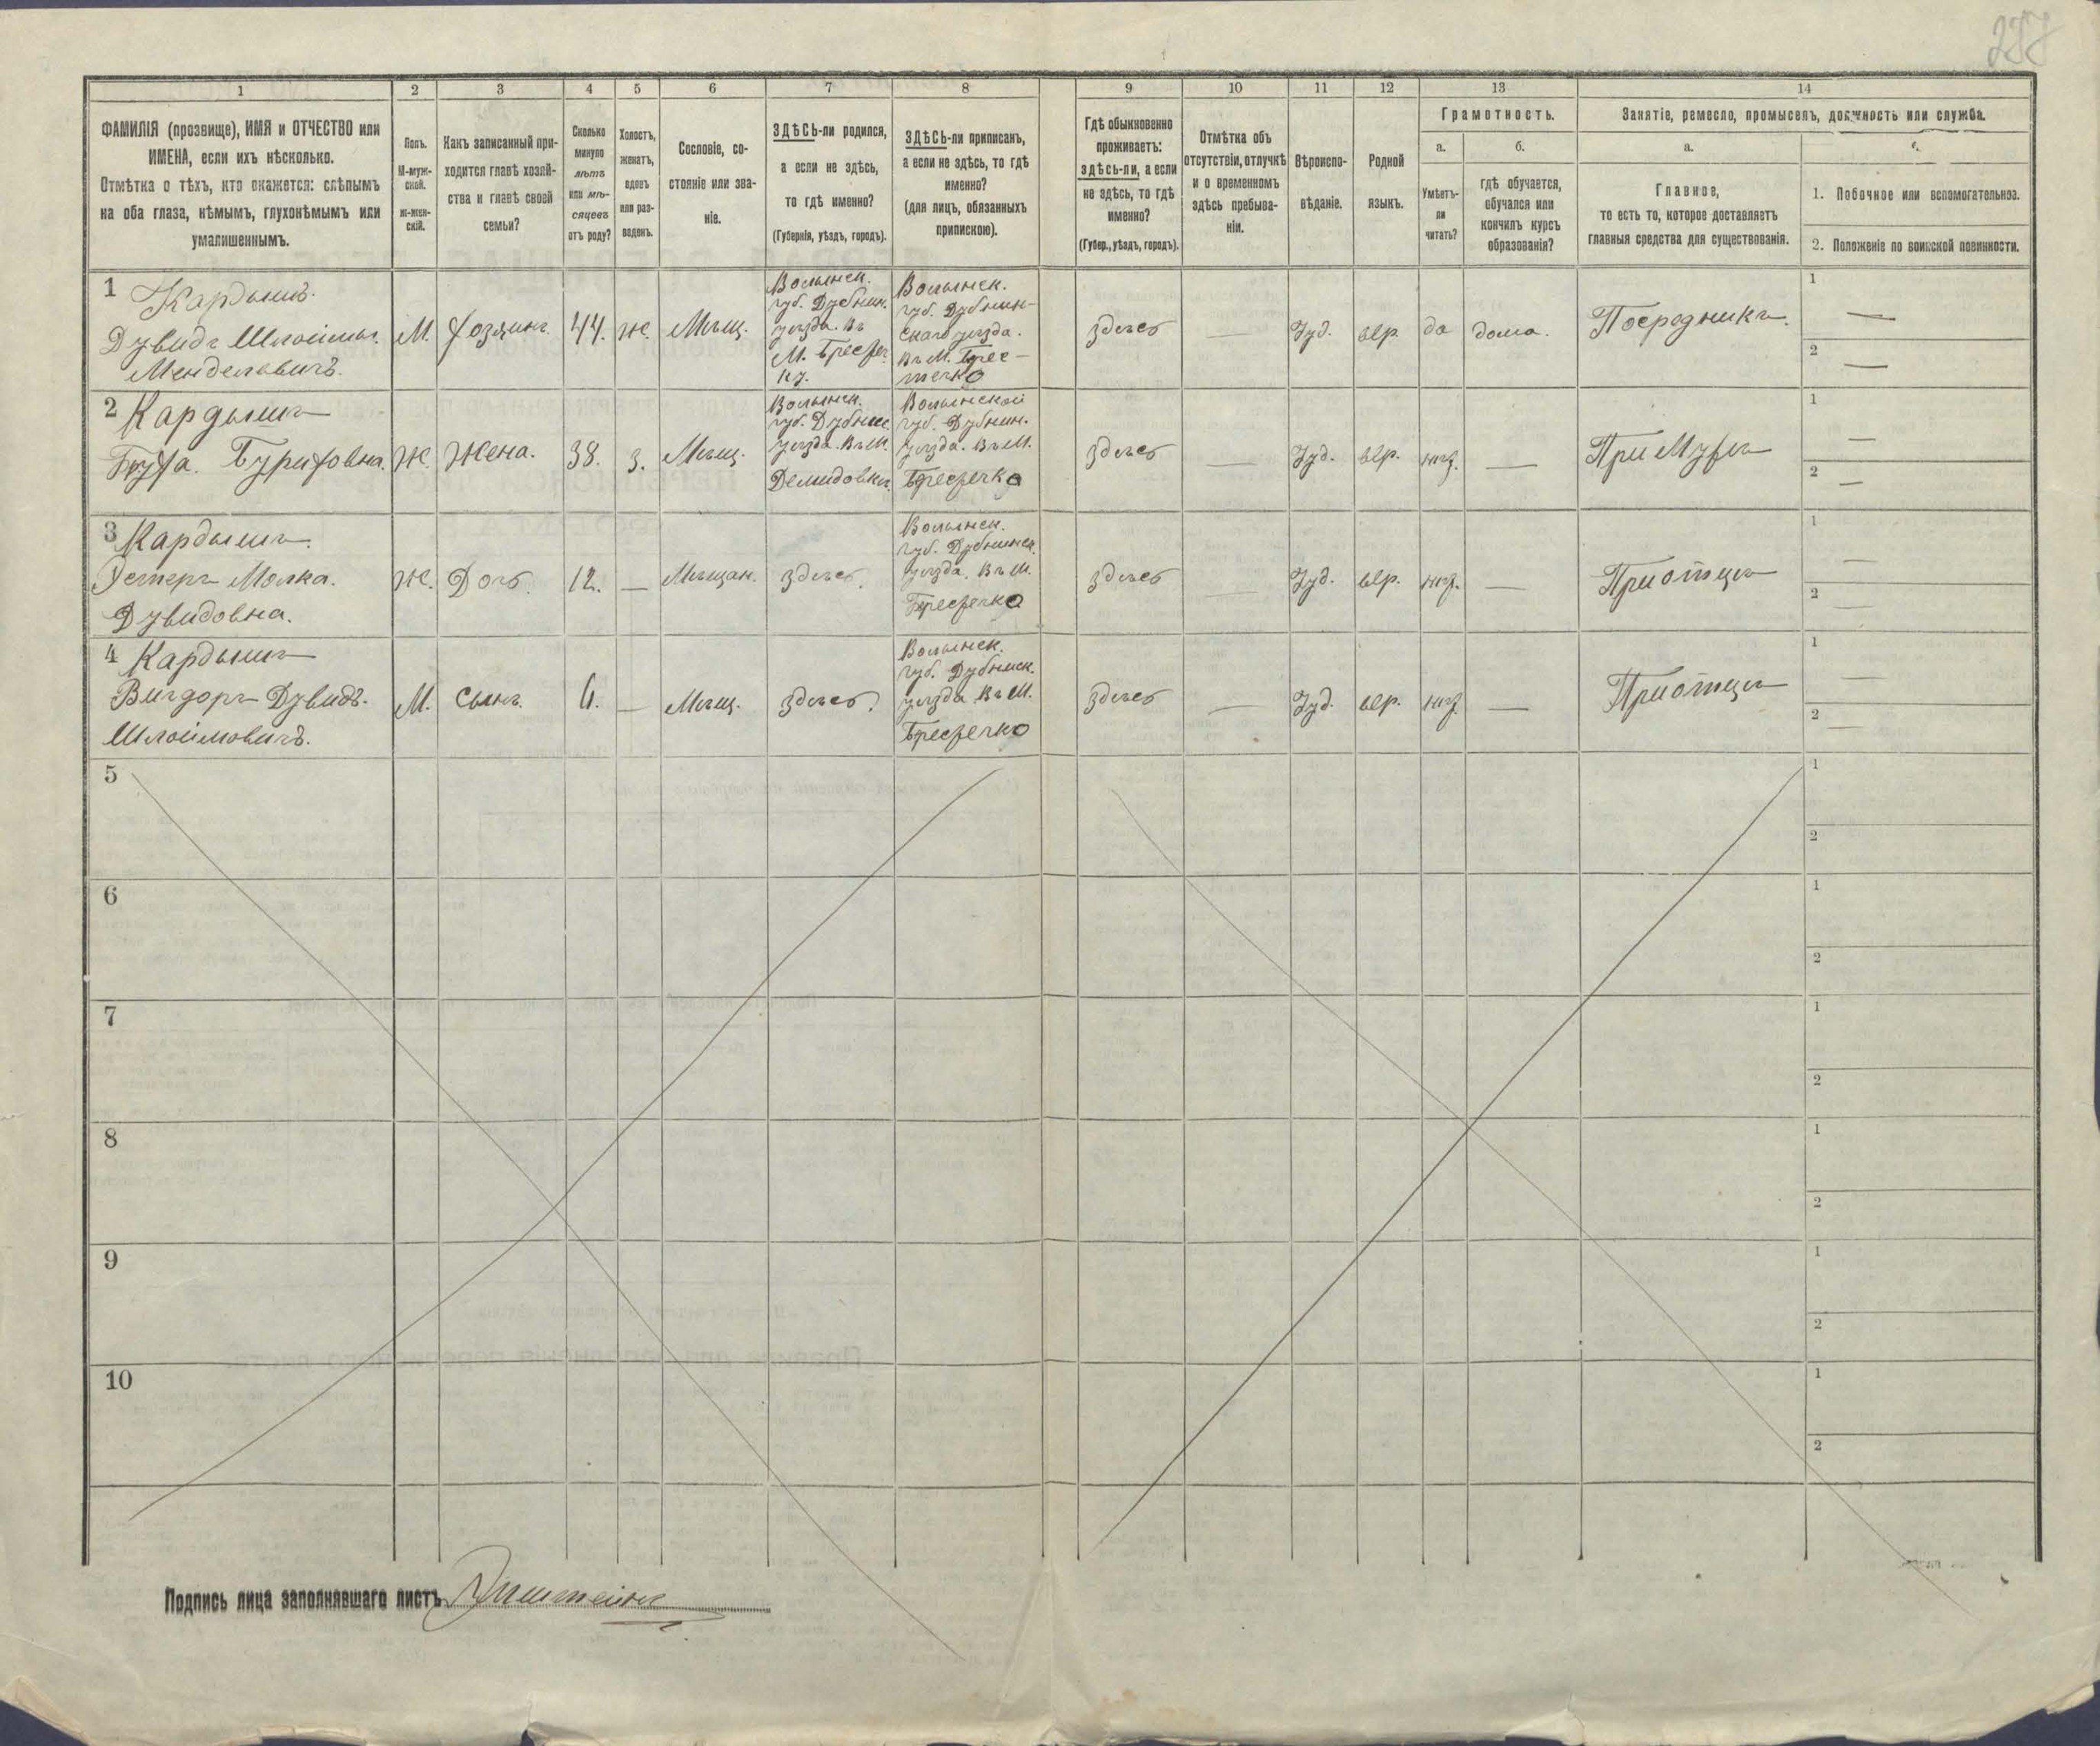 277
1
2
3
4
5
6
7
8
9
10
11
12
13
14
ФАМИЛІЯ (прозвище), ИМЯ и ОТЧЕСТВО или
ИМЕНА, если ихъ нѣсколько.
Отмѣтка о тѣхъ, кто окажется: слѣпымъ
на оба глаза, нѣмымъ, глухонѣмымъ или
умалишеннымъ.
Полъ.
М-муж-
ской.
Ж-жен-
скій.
Какъ записанный при-
ходится главѣ хозяй-
ства и главѣ своей
семьи?
Сколько
минуло
лѣтъ
или мѣ-
сяцевъ
отъ роду?
Холостъ,
женатъ,
вдовъ
или раз-
веденъ.
Сословіе, со-
стояніе или зва-
ніе.
ЗДѢСЬ-ли родился,
а если не здѣсь,
то гдѣ именно?
(Губернія, уѣздъ, городъ).
ЗДѢСЬ-ли приписанъ,
а если не здѣсь, то гдѣ
именно?
(для лицъ, обязанныхъ
припискою).
Гдѣ обыкновенно
проживаетъ:
здѣсь-ли, а если
не здѣсь, то гдѣ
именно?
(Губер., уѣздъ, городъ).
Отмѣтка объ
отсутствіи, отлучкѣ
и о временномъ
здѣсь пребыва-
ніи.
Вѣроиспо-
вѣданіе.
Родной
языкъ.
Грамотность.
а.
Умѣетъ-
ли
читать?
б.
гдѣ обучается,
обучался или
кончилъ курсъ
образованія?
Занятіе, ремесло, промыселъ, должность или служба.
а.
Главное,
то есть то, которое доставляетъ
главныя средства для существованія.
1. Побочное или вспомогательное.
2. Положеніе по воинской повинности.
1 Кардышъ.
Дувидъ Шлоима.
Менделовичъ.
М.
Хозяинъ.
44.
Ж.
Мѣщ.
Волынск.
губ. Дубнин.
уѣзда. Въ
М. Берестеч
ку.
Волынск.
губ. Дубнин-
скаго уѣзда.
Въ М. Берес-
течко
здѣсь
—
Іуд.
евр.
да
дома.
Посредникъ.
1 —
2 —
2 Кардышъ
Буриховна.
Ж.
Жена.
38.
З.
Мѣщ.
Волынск.
губ. Дубнин
уѣзда. Въ М.
Демидовкѣ.
Волынской
губ. Дубнин.
уѣзда. Въ М.
Берестечко
здѣсь
—
Іуд.
евр.
нѣт.
—
При Мужѣ
1 —
2 —
3 Кардышъ.
Естеръ Малка.
Дувидовна.
Ж.
Дочь
12.
—
Мѣщан.
здѣсь.
Волынск.
губ. Дубнинск.
уѣзда. Въ М.
Берестечко
здѣсь
—
Іуд.
евр.
нѣт.
—
При отцѣ
1 —
2 —
4 Кардышъ
Вигдоръ Дувидъ-
Шлоимовичъ.
М.
Сынъ.
6.
—
Мѣщ.
здѣсь.
Волынск.
губ. Дубнинск.
уѣзда. Въ М.
Берестечко
здѣсь
—
Іуд.
евр.
нѣт.
—
При отцѣ
1 —
2 —
5
1
2
6
1
2
7
1
2
8
1
2
9
1
2
10
1
2
Подпись лица заполнявшаго листъ